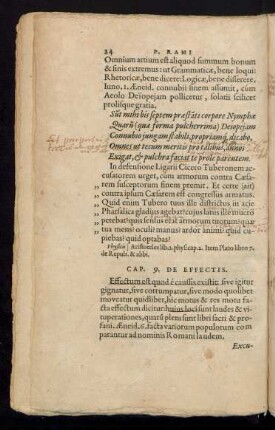 24 P. RAMI
Omnium artium est aliquod summum bonum
& finis extremus: ut Grammaticæ, bene loqui:
Rhetoricæ, bene dicere: Logicæ, bene disserere,
Iuno. 1. Æneid. connubii finem assumit, cùm
Aeolo Deïopejam pollicetur, solatii scilicet
prolisque gratia.
Sut mihi bis septem præstāti corpore Nymphæ
Quarū (qua forma pulcherrima) Deiopejam
Connubio jungam stabili, propriamq́; dicabo,
Omnes ut tecum meritis pro talibus, annos
Exigat, & pulchra faciat te prole parentem.
In defensione Ligarii Cicero Tuberonem ac-
cusatorem urget, cùm armorum contra Cæsa-
„ rem susceptorum finem premit. Et certè
„ contra ipsum Cæsarem est congressus armatus.
„ Quid enim Tubero tuus ille districtus in acie
„ Pharsalica gladius agebat? cujus latus ille mucro
„ petebat? quis sensus erat armorum tuorum? quæ
„ tua mens? oculi? manus? ardor animi? quid cu-
„ piebas? quid optabas?
Aristot. in lib. 2. phys. cap. 2. Item Plato libro 7.
de Repub. & alibi.
CAP. 9. DE EFFECTIS.
Effectum est quod è caussis existit: sive igitur
gignatur, sive corrumpatur, sive modo quolibet
moveatur quidlibet, hic motus & res motu fa-
cta effectum dicitur: hujus loci sunt laudes & vi-
tuperationes, quarū pleni sunt libri sacri & pro-
fani. Æneid. 6. facta variorum populorum com
parantur ad nominis Romani laudem.
Excu-